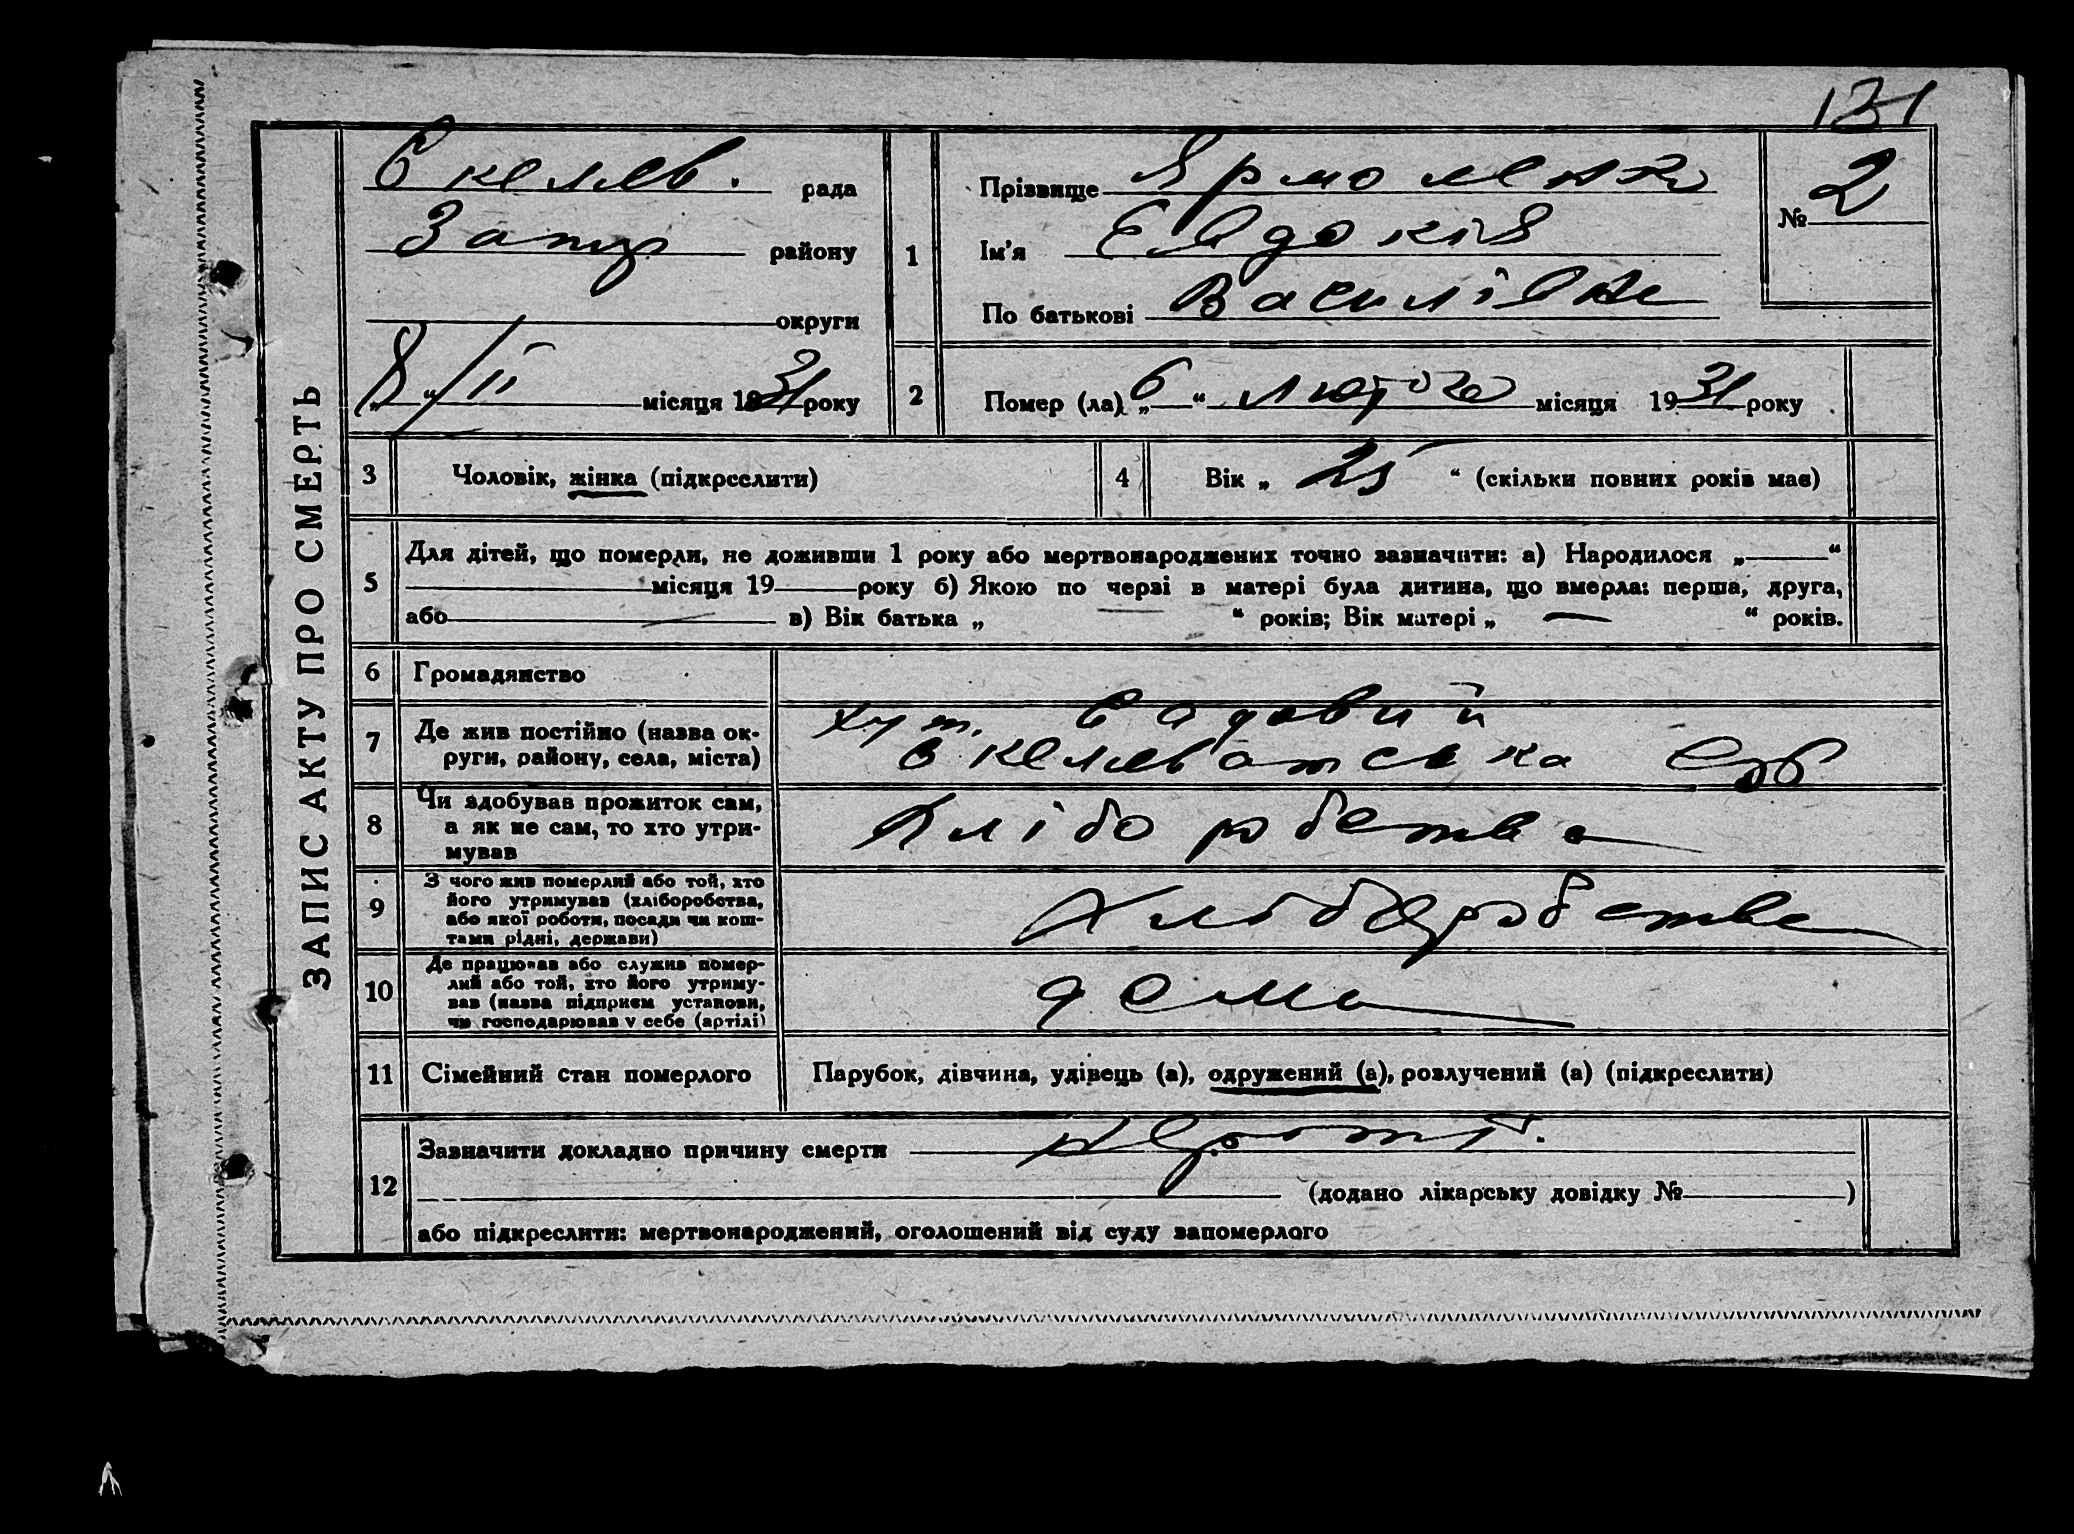 131
ЗАПИС АКТУ ПРО СМЕРТЬ
Скелев. рада
Запор району
округи
"8" / II місяця 1931 року
1
Прізвище Ярмоленко
Ім'я Евдокія
По батькові Василівна
№ 2
2 Помер (ла) „6“ лютого місяця 1931 року
3 Чоловік, жінка (підкреслити)
4 Вік „25“ (скільки повних років має)
5 Для дітей, що померли, не доживши 1 року або мертвонароджених точно зазначити: а) Народилося „ “
місяця 19 року б) Якою по черзі в матері була дитина, що вмерла: перша, друга,
або — в) Вік батька „ — “ років; Вік матері „ — “ років.
6 Громадянство
7 Де жив постійно (назва ок-
руги, району, села, міста)
хут. Садовий
Скелеватська с/р
8 Чи здобував прожиток сам,
а як не сам, то хто утри-
мував
Хліборобства
9 З чого жив померлий або той, хто
його утримував (хліборобства,
або якої роботи, посади чи кош-
тами рідні, держави)
Хліборобства
10 Де працював або служив помер-
лий або той, хто його утриму-
вав (назва підприєм установи,
чи господарював у себе (артілі)
дома
11 Сімейний стан померлого
Парубок, дівчина, удівець (а), одружений (а), розлучений (а) (підкреслити)
12 Зазначити докладно причину смерти
(додано лікарську довідку № )
або підкреслити: мертвонароджений, оголошений від суду запомерлого